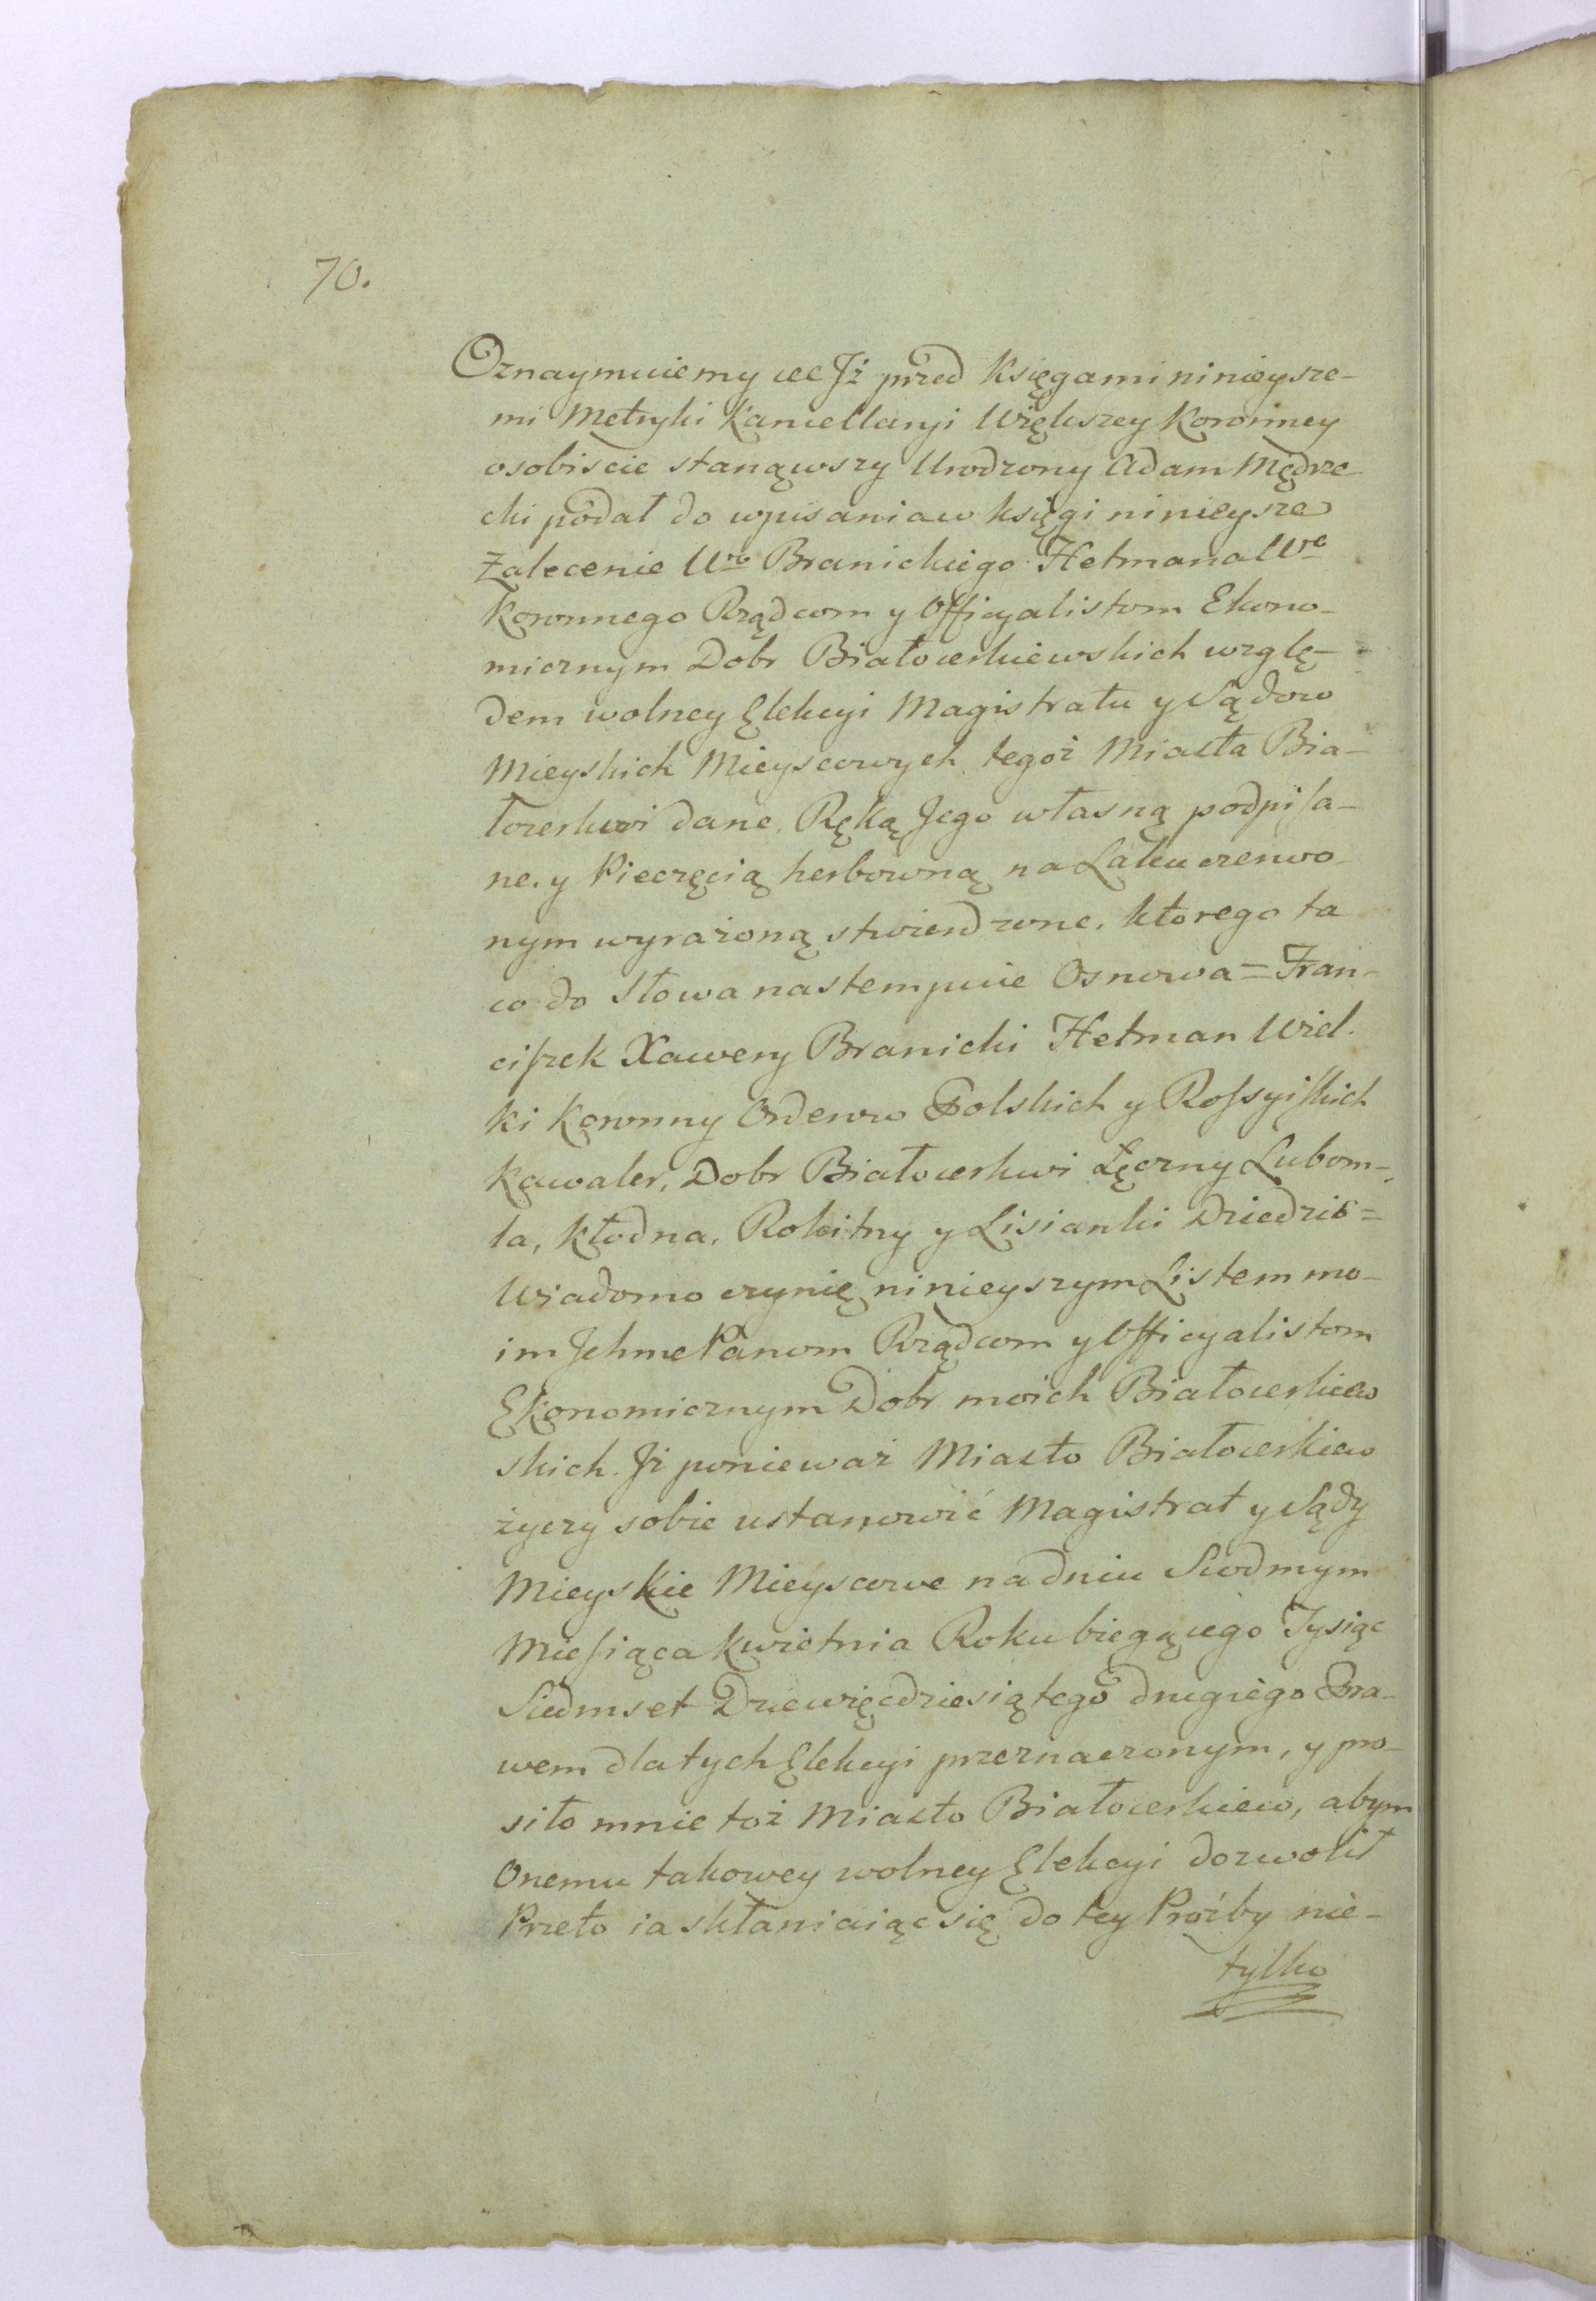 70.
Oznaymuiemy etc Jż przed Księgami ninieysze-
mi Metryki Kancellaryi Większey Koronney
osobiscie stanąwszy Urodzony Adam Mędrze-
cki podał do wpisania w księgi ninieysze
Zalecenie Uro Branickiego Hetmana Wo
Koronnego Rządcom y Officyalistom Ekono-
micznym Dobr Białocerkiewskich wzglę-
dem wolney Elekcyi Magistratu y Sądow
Mieyskich Mieyscowych tegoż Miasta Bia-
łocerkwi dane, Ręką Jego własną podpisa-
ne. y Pieczęcią herbowną na Laku czerwo-
nym wyrażoną stwierdzone. ktorego ta
co do słowa nastempuie Osnowa = Fran-
ciszek Xawery Branicki Hetman Wiel-
ki Koronny Orderow Polskich y Rossyiskich
Kawaler, Dobr Białocerkwi Łęczny Lubom-
la, Kłodna, Rokitny y Lisianki Dziedzic =
Wiadomo czynię ninieyszym Listem mo-
im Jchmc Panom Rządcom y Officyalistom
Ekonomicznym Dobr moich Białocerkiew
skich. Jż ponieważ Miasto Białocerkiew
życzy sobie ustanowić Magistrat y Sądy
Mieyskie Mieyscowe na dniu Siodmym
Miesiąca Kwietnia Roku bieżącego Tysiąc
Siedmset Dziewięcdziesiątego drugiego Pra-
wem dla tych Elekcyi przeznaczonym, y pro-
siło mnie toż Miasto Białocerkiew, abym
Onemu takowey wolney Elekcyi dozwolił
Przeto ia skłaniaiąc się do tey Proźby nie-
tylko